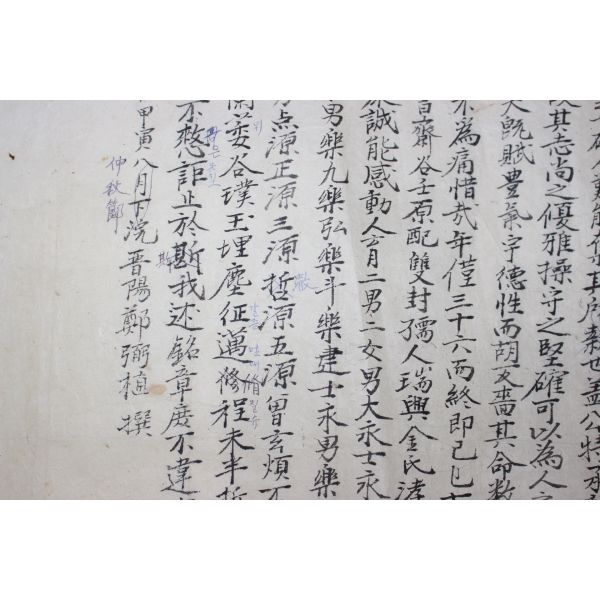 其志尚之優雅操守之堅確可以為人
天旣賦豊氣宇德性而胡又嗇其命數
不為痛惜哉年僅三十六而終即己
齋谷壬原配雙封孺人瑞興金氏
誠能感動人育二男二女男大永士永
男樂九樂弘樂斗樂建士永男樂
点源正源三源哲源五源曾玄煩不
萎谷璞玉埋塵征邁脩程未半
不憗詎止於斯我述銘章庶不違
甲寅八月下浣晋陽鄭弼植撰
仲秋節